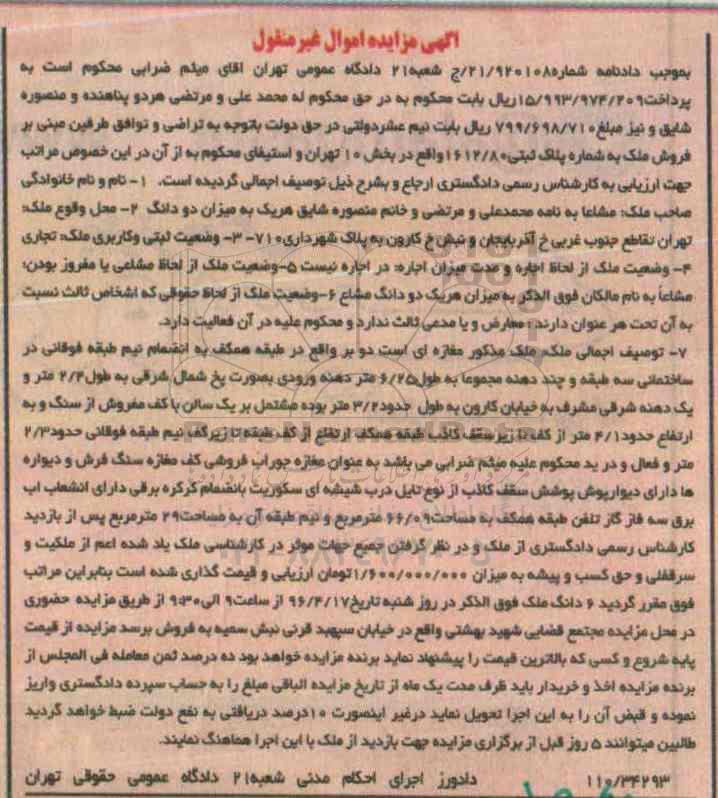 اگهی مزایده اموال غیر منقول
بموجب دادنامه شماره۲۱/۹۲۰۱۰۸/ج شعبه۲۱ دادگاه عمومی تهران اقای میثم ضرابی محکوم است به
پرداخت۱۵/۹۹۳/۹۷۴/۲۰۹ریال بابت محکوم به در حق محکوم له محمد علی و مرتضی هردو پناهنده و منصوره
شایق و نیز مبلغ۷۹۹/۶۹۸/۷۱۰ ریال بابت نیم عشردولتی در حق دولت باتوجه به تراضی و توافق طرفین مبنی بر
فروش ملک به شماره پلاک ثبتی۱۶۱۲/۸۰واقع در بخش ۱۰ تهران و استیفای محکوم به از آن در این خصوص مراتب
جهت ارزیابی به کارشناس رسمی دادگستری ارجاع و بشرح ذیل توصیف اجمالی گردیده است. ۱- نام و نام خانوادگی
صاحب ملک: مشاعا به نامه محمدعلی و مرتضی و خانم منصوره شایق هریک به میزان دو دانگ ۲- محل وقوع ملک:
تهران تقاطع جنوب غربی خ آذربایجان و نبش خ کارون به پلاک شهرداری۷۱۰- ۳- وضعیت ثبتی وکاربری ملک: تجاری
۴- وضعیت ملک از لحاظ اجاره و مدت میزان اجاره: در اجاره نیست ۵-وضعیت ملک از لحاظ مشاعی یا مفروز بودن:
مشاعاً به نام مالکان فوق الذکر به میزان هریک دو دانگ مشاع ۶-وضعیت ملک از لحاظ حقوقی که اشخاص ثالث نسبت
به آن تحت هر عنوان دارند : معارض و یا مدعی ثالث ندارد و محکوم علیه در آن فعالیت دارد.
۷- توصیف اجمالی ملک: ملک مذکور مغازه ای است دو بر واقع در طبقه همکف به انضمام نیم طبقه فوقانی در
ساختمانی سه طبقه و چند دهنه مجموعا به طول۶/۲۵ متر دهنه ورودی بصورت پخ شمال شرقی به طول۲/۴ متر و
یک دهنه شرقی مشرف به خیابان کارون به طول حدود۳/۲ متر بوده مشتمل بر یک سالن با کف مفروش از سنگ و به
ارتفاع حدود۴/۱ متر از کف تا زیرسقف کاذب طبقه همکف ارتفاع از کف طبقه تا زیرکف نیم طبقه فوقانی حدود۲/۳
متر و فعال و در ید محکوم علیه میثم ضرابی می باشد به عنوان مغازه جوراب فروشی کف مغازه سنگ فرش و دیواره
ها دارای دیوارپوش پوشش سقف کاذب از نوع تایل درب شیشه ای سکوریت بانضمام کرکره برقی دارای انشعاب اب
برق سه فاز گاز تلفن طبقه همکف به مساحت۶۶/۰۹ مترمربع و نیم طبقه آن به مساحت۲۹ مترمربع پس از بازدید
کارشناس رسمی دادگستری از ملک و در نظر گرفتن جمیع جهات موثر در کارشناسی ملک یاد شده اعم از ملکیت و
سرقفلی و حق کسب و پیشه به میزان ۱/۶۰۰/۰۰۰/۰۰۰تومان ارزیابی و قیمت گذاری شده است بنابراین مراتب
فوق مقرر گردید ۶ دانگ ملک فوق الذکر در روز شنبه تاریخ۹۶/۴/۱۷ از ساعت۹ الی۹:۳۰ از طریق مزایده حضوری
در محل مزایده مجتمع قضایی شهید بهشتی واقع در خیابان سپهبد قرنی نبش سمیه به فروش برسد مزایده از قیمت
پایه شروع و کسی که بالاترین قیمت را پیشنهاد نماید برنده مزایده خواهد بود ده درصد ثمن معامله فی المجلس از
برنده مزایده اخذ و خریدار باید ظرف مدت یک ماه از تاریخ مزایده الباقی مبلغ را به حساب سپرده دادگستری واریز
نموده و قبض آن را به این اجرا تحویل نماید درغیر اینصورت ۱۰درصد دریافتی به نفع دولت ضبط خواهد گردید
طالبین میتوانند ۵ روز قبل از برگزاری مزایده جهت بازدید از ملک با این اجرا هماهنگ نمایند.
۱۱۰/۳۴۲۹۳ دادورز اجرای احکام مدنی شعبه۲۱ دادگاه عمومی حقوقی تهران